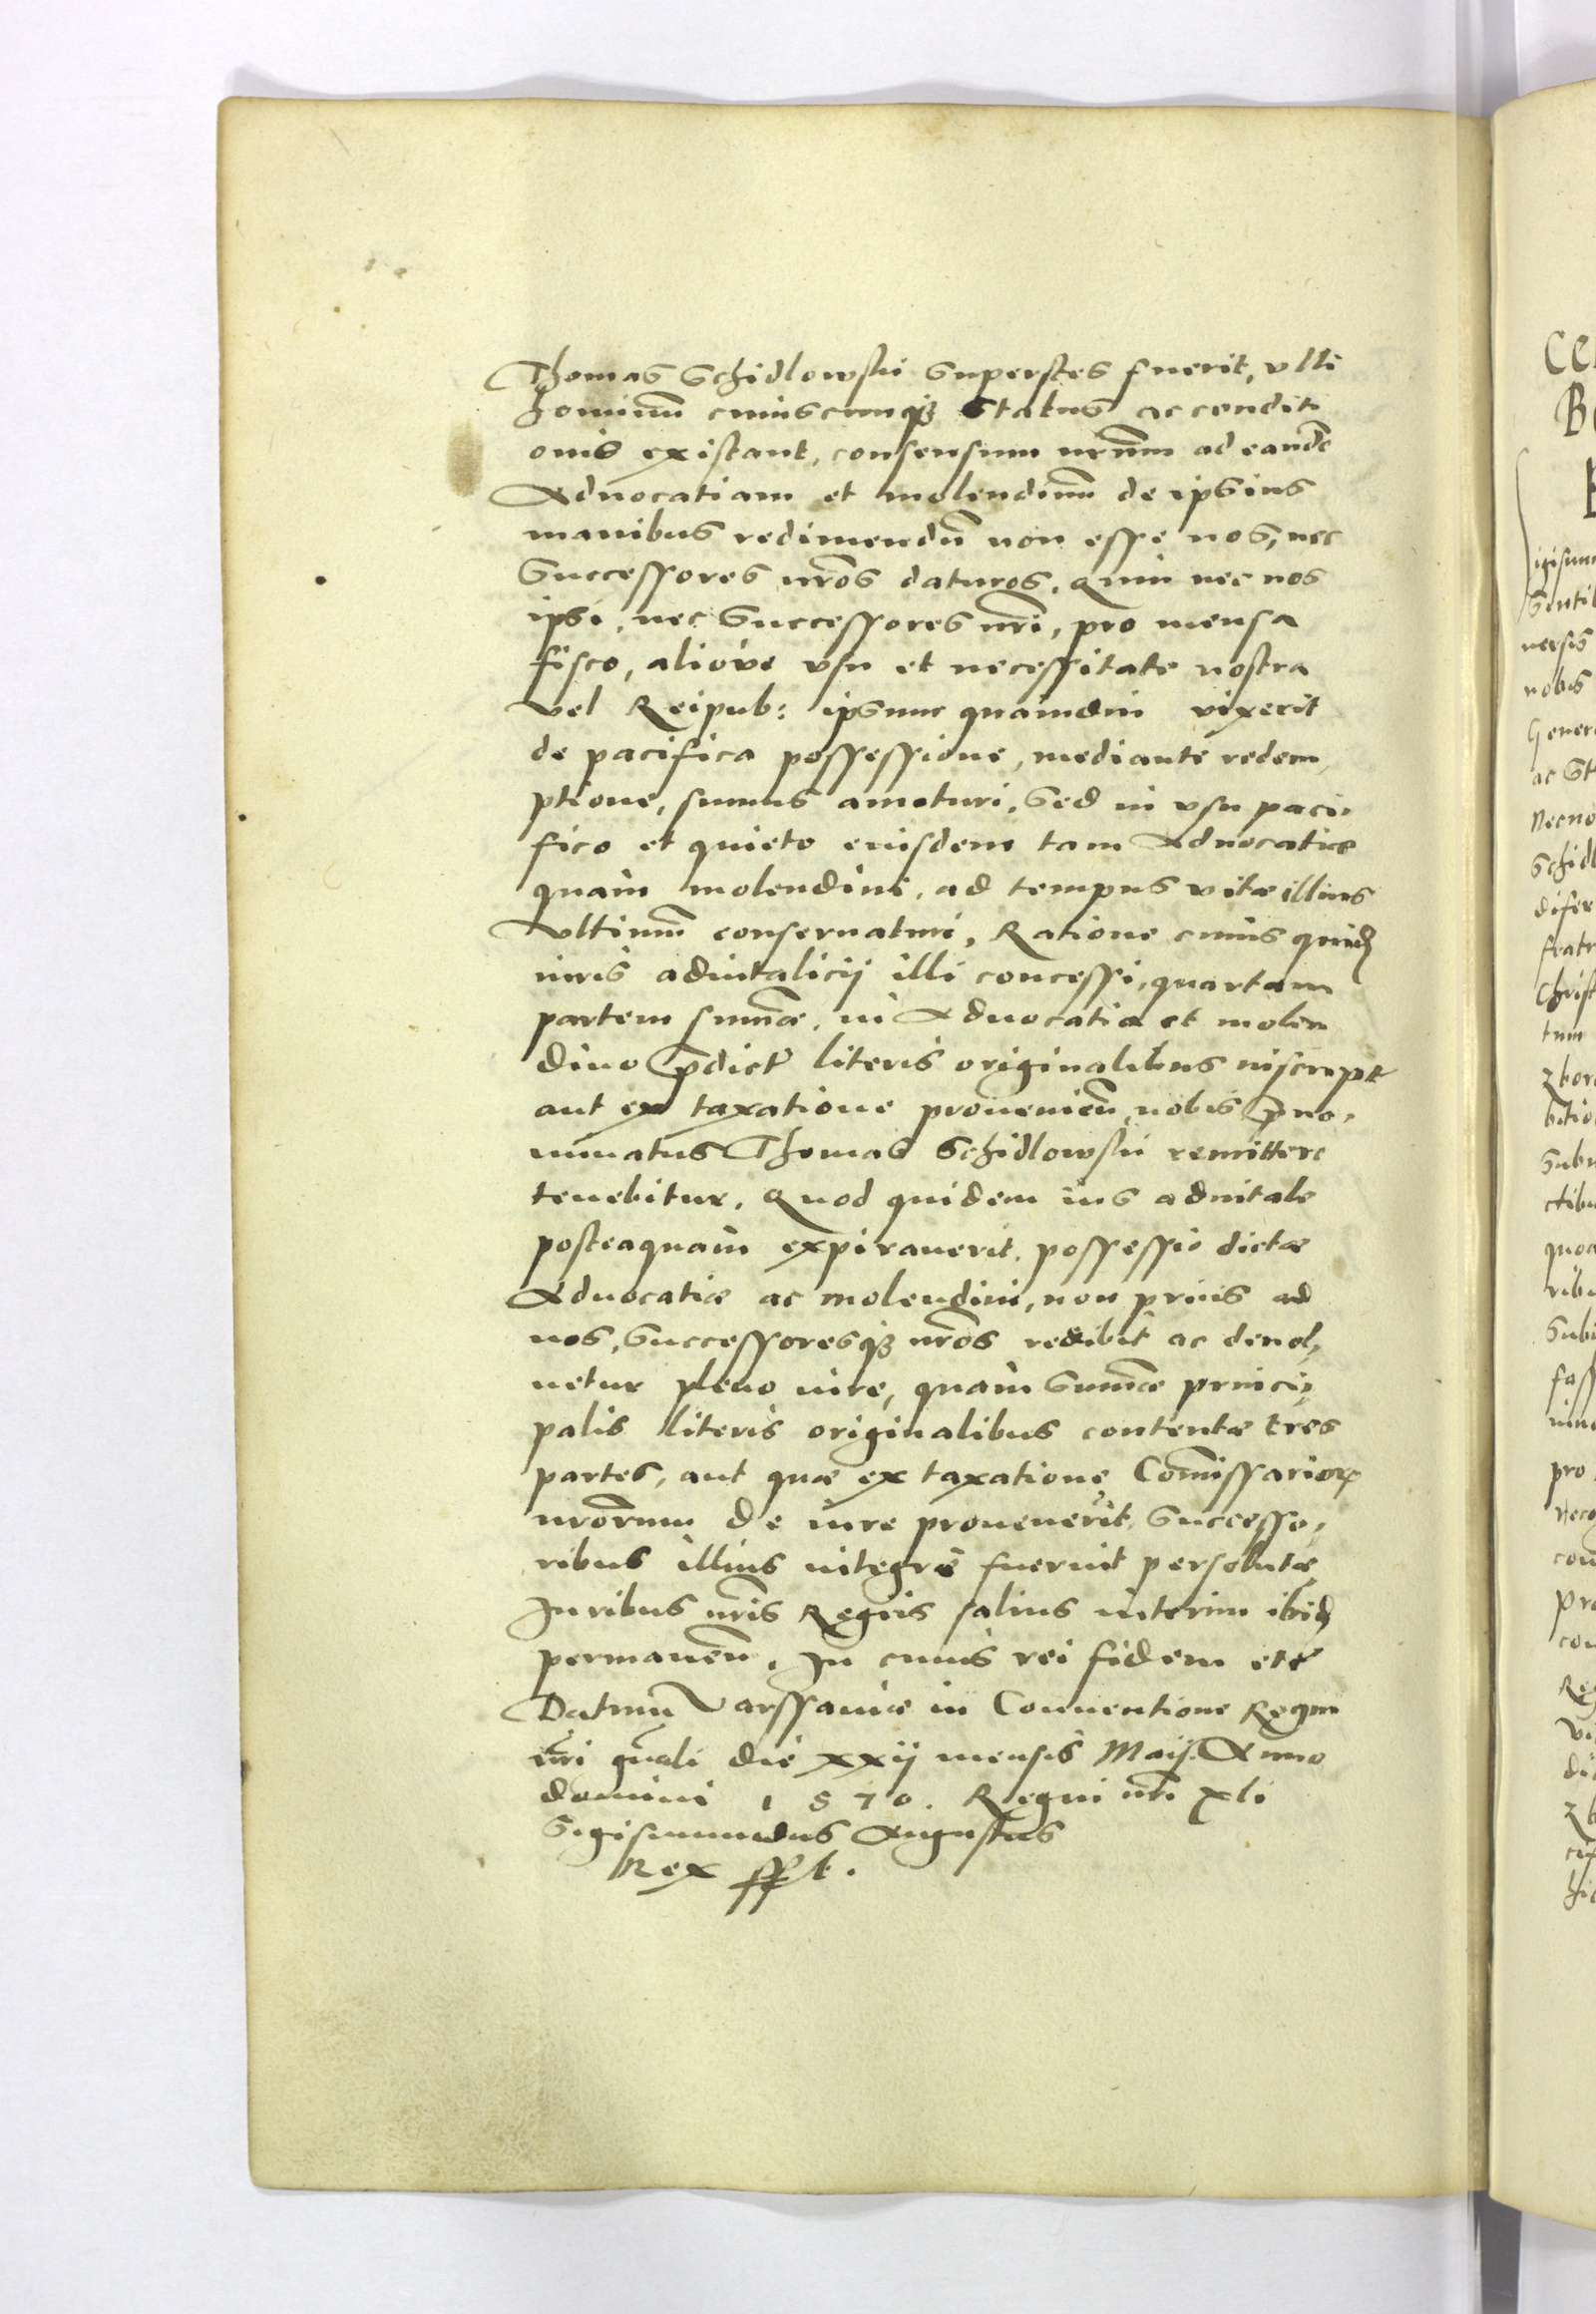 Thomas Schidlowski superstes fuerit, vlli
hominũ cuiuscunq̃ status ac conditi
onis existant, consensum nr̃um ad eandẽ
Aduocatiam et molendinũ de ipsius
manibus redimendũ non esse nos, nec
Successores nr̃os daturos. Quin nec nos
ipsi, nec Successores nr̃i, pro mensa
fisco, aliove vsu et necessitate nostra
vel Reipub: ipsum quamdiu vixerit
de pacifica possessione, mediante redem,
ptione, sumus amoturi. Sed in vsu paci,
fico et quieto eiusdem tam Aduocatiæ
quam molendini, ad tempus vitæ illius
vltimũ conseruaturi, Ratione cuius quid̃
iuris aduitalicij illi concessi, quartam
partem sum̃æ, in Aduocatia et molen
dino p̃dict̃ literis originalibus inscript̃
aut ex taxatione prouenieñ nobis p̃no,
minatus Thomas Schidlowski remittere
tenebitur. Quod quidem ius aduitale
posteaquam expirauerit, possessio dictæ
Aduocatiæ ac molendini, non prius ad
nos, Successoresq̃ nr̃os redibit ac deuol,
uetur pleno iure, quam Sum̃æ princi,
palis literis originalibus contentæ tres
partes, aut quæ ex taxatione Com̃issarior̃
nr̃orum de iure prouenerit, Successo,
ribus illius integre fuerint persolutæ
Iuribus nr̃is Regiis saluis interim ibid̃
permaneñ. In cuius rei fidem etc̃
Datum Varssauiæ in Conuentione Regni
nr̃i gñali die xxij mensis Maij. Anno
domini 1570. Regni nr̃i xli
Sigismundus Augustus
Rex sspt.

CC
B
igisum
Genti
uersis
nobis
Gener
ac St
Necno
Schidl
difer
fratr
Christ
tum
zbor
bitio
Subu
ctibu
quoa
ribu
Subi
fass
pro
Reco
com
pro
con
Reg
di
zb